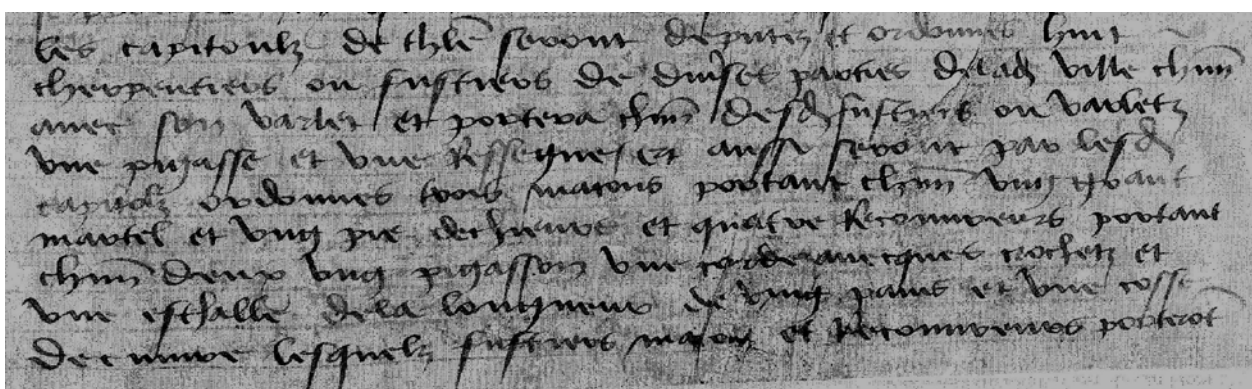 les capitoulz de thle seront deputez et ordonnes huit
cherpentiers ou fustiers de diuses parties delad ville chun
auec son varlet et portera chun desd fustiers ou varletz
vne pigasse et vne Ressegue et aussi seront par lesd
capitolz ordonnes trois massons portant chun vng grant
martel et vng pie de chieure et quatre Recouureurs portant
chun deux vng pigasson vne corde auecques crochetz et
vne eschalle de la longueur de ving pans et vne cosse
de cuiure lesquelz fustiers masons et Recouureurs porterot